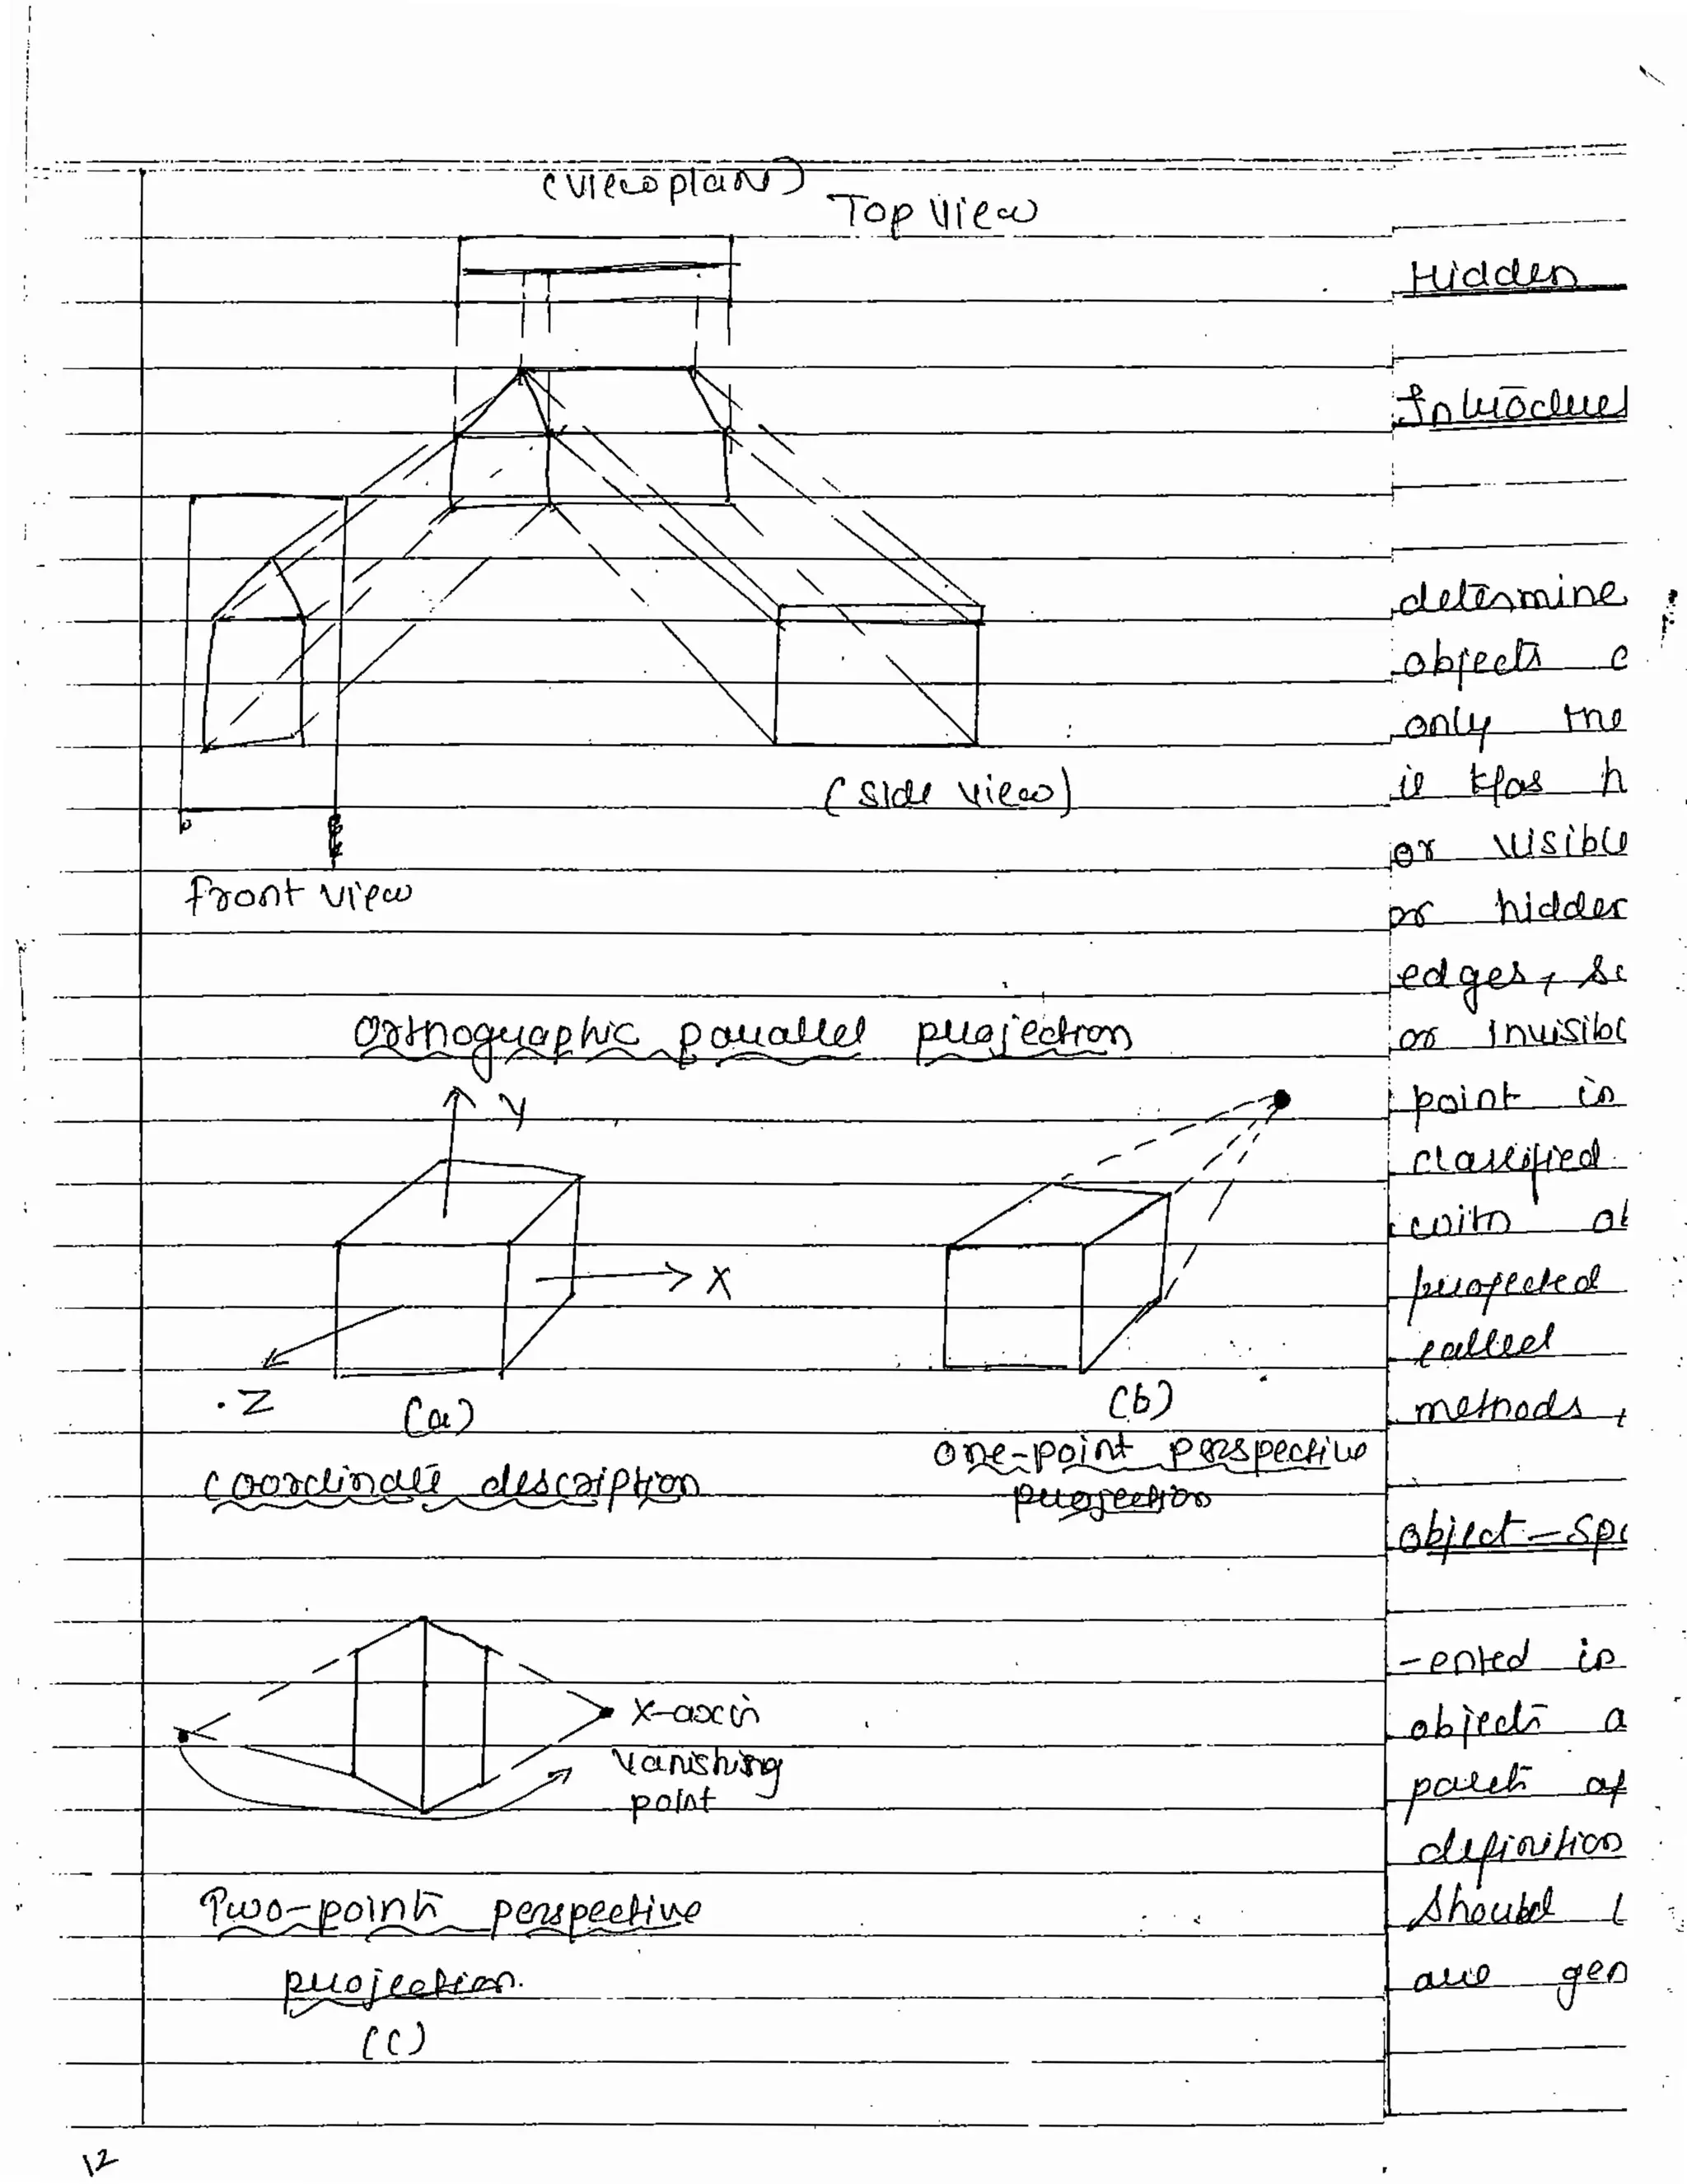 (viewplan)
Top view
(side view)
front view
Orthographic parallel projection
Y
X
Z
(a)
(b)
coordinate description
one-point perspective
projection
X-axis
vanishing
point
Two-point perspective
projection.
(c)
12
Hidden
determine
objects
only the
or
or
edges,
or
point is
classified
with
projected
called
methods,
object-
-ented in
objects a
definition
Should
are gen